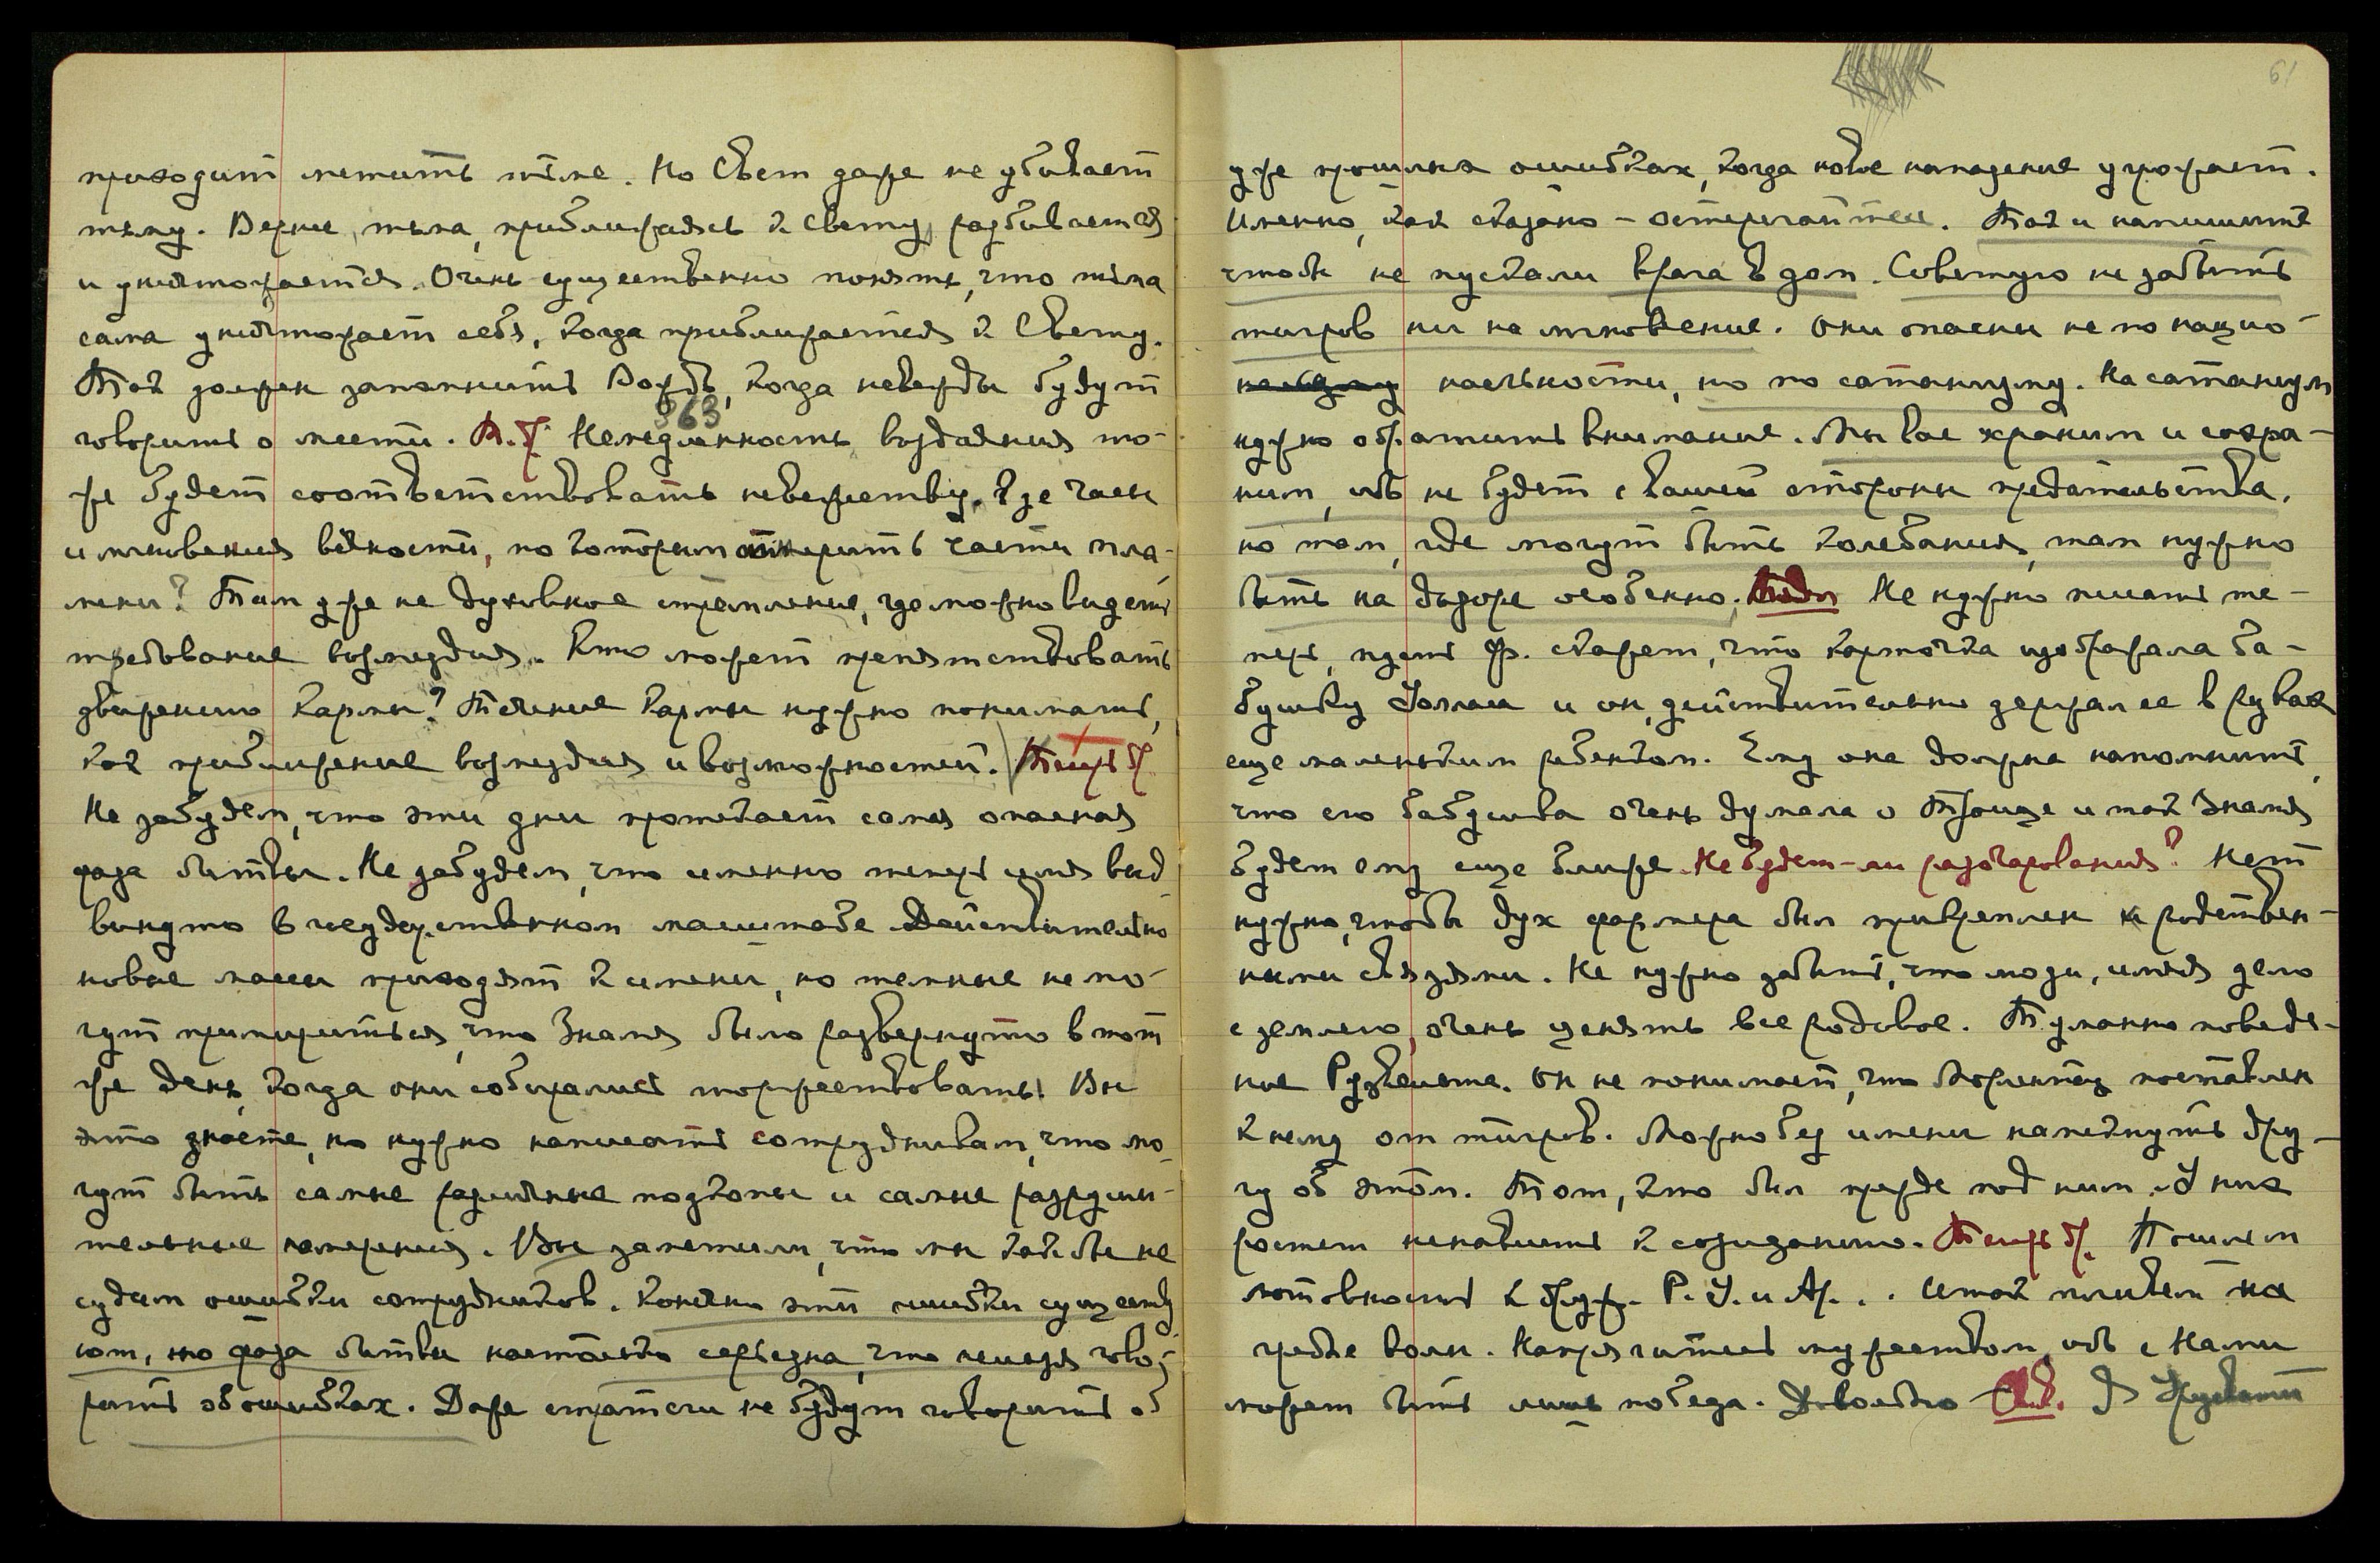 приходит мстить тьме. Но Свет даже не убивает
тьму. Вернее, тьма, приближаясь к Свету, разбивается
и уничтожается. Очень существенно понять, что тьма
сама уничтожает себя, когда приближается к Свету.
Так должен запомнить Вождь, когда невежды будут
363
говорить о мести. Немедленность воздаяния то-
же будет соответствовать невежеству. Где часы
и мгновения вечности, по которым отмерить части пла-
мени? Там уже не духовное стремление, где можно видеть
требование возмездия. Кто может препятствовать
движению Кармы? Течение Кармы нужно понимать,
как приближение возмездия и возможностей. Теперь др.
Не забудем, что эти дни протекает самая опасная
фаза битвы. Не забудем, что именно теперь имя выд
винуто в государственном масштабе. Действительно
новые массы приходят к имени, но темные не мо-
гут примириться, что Знамя было развернуто в тот
же день, когда они собирались торжествовать! Вы
это знаете, но нужно написать сотрудникам, что мо
гут быть самые различные подкопы и самые разруши-
тельные намерения. Вы заметили, что мы как бы не
судим ошибки сотрудников. Конечно эти ошибки существу
ют, но фаза битвы настолько серьезна, что нельзя гово-
рить об ошибках. Даже стратеги не будут говорить об
61
уже прошлых ошибках, когда новое нападение угрожает.
Именно, как сказано – остерегайтесь. Так и напишите
чтобы не пускали врага в дом. Советую не забыть
тигров ни на мгновение. Они опасны не по нацио-
нальности, но по сатанизму. На сатанизм
нужно обратить внимание. Мы вас храним и сохра-
ним, ибо не будет с вашей стороны предательства,
но там, где могут быть колебания, там нужно
быть на дозоре особенно. Не нужно писать те-
перь, пусть Ф. скажет, что карточка изображала ба-
бушку Уоллеса и он, действительно держал ее в руках
еще маленьким ребенком. Ему она должна напомнить,
что его бабушка очень думала о Троице и так Знамя
будет ему еще ближе. Не будет-ли разочарования? Нет
нужно, чтобы дух фармера был прикреплен к родствен-
ными связями. Не нужно забыть, что люди, имея дело
с землею, очень ценять все родовое. Туманно поведе-
ние Рузвельта. Он не понимает, что Моргентау поставлен
к нему от тигров. Можно без имени намекнуть дру-
гу об этом. Тот, кто был прежде под ним. У них
растет ненависть к созиданию. Теперь др. Пошлем
готовность к Р. У. и Ам. . . Итак плывем на
гребне волн. Напрягитесь мужеством, ибо с Нами
может быть лишь победа. Довольно